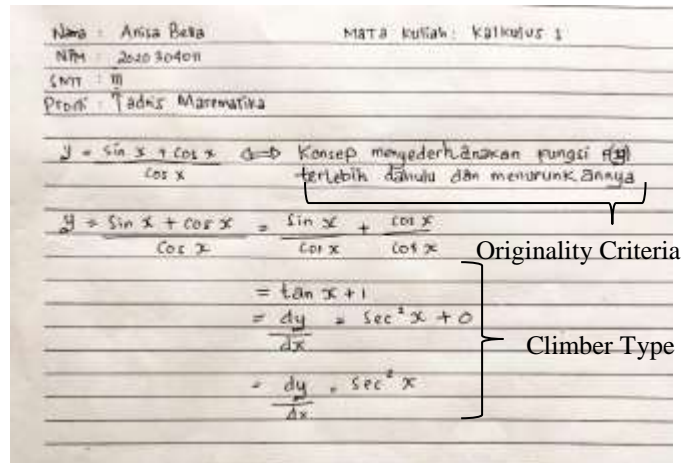 Nama : Anisa Bella Mata kuliah : Kalkulus 1
NPM : 2020304011
SMT : III
Prodi : Tadris Matematika
y = sin x + cos x / cos x ⇔ Konsep menyederhanakan fungsi f(x)
terlebih dahulu dan menurunkannya
y = sin x + cos x / cos x = sin x / cos x + cos x / cos x
Originality Criteria
= tan x + 1
= dy/dx = sec² x + 0
Climber Type
= dy/dx = sec² x